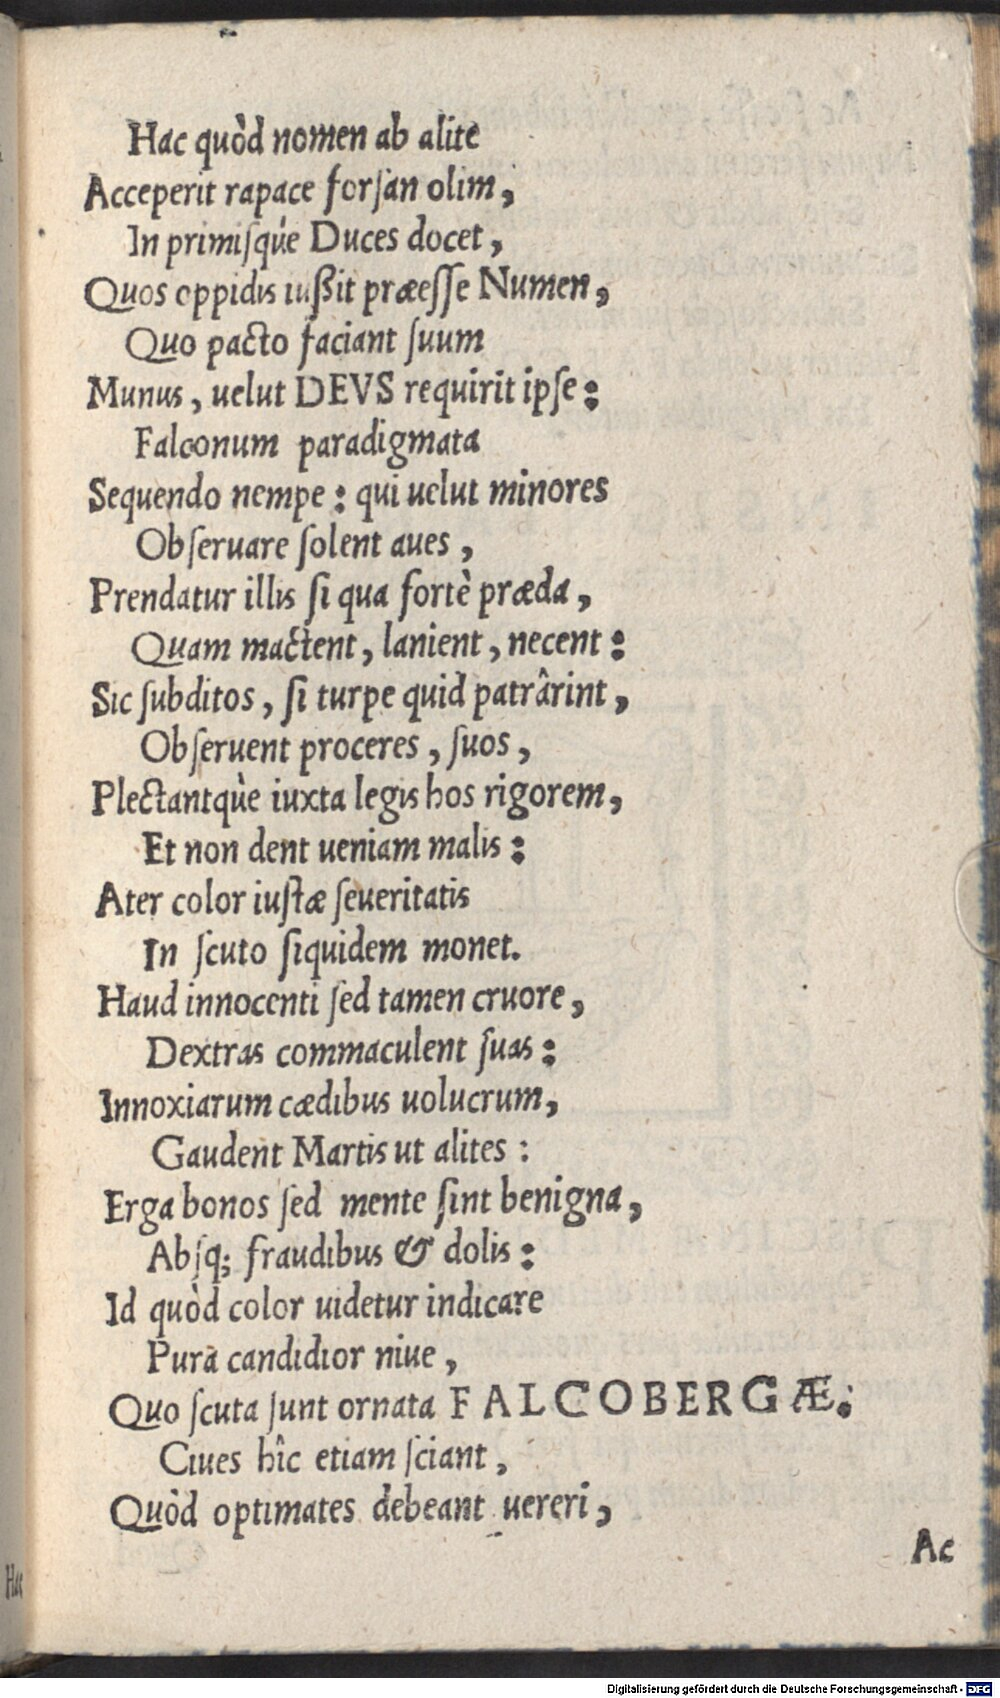 Hac quòd nomen ab alite
Acceperit rapace forſan olim,
In primiſq́ue Duces docet,
Quos oppidis iußit præeſſe Numen,
Quo pacto faciant ſuum
Munus, uelut DEVS requirit ipſe:
Falconum paradigmata
Sequendo nempe: qui uelut minores
Obſeruare ſolent aues,
Prendatur illis ſi qua fortè præda,
Quam mactent, lanient, necent:
Sic ſubditos, ſi turpe quid patrârint,
Obſeruent proceres, ſuos,
Plectantq́ue iuxta legis hos rigorem,
Et non dent ueniam malis:
Ater color iuſtæ ſeueritatis
In ſcuto ſiquidem monet.
Haud innocenti ſed tamen cruore,
Dextras commaculent ſuas:
Innoxiarum cædibus uolucrum,
Gaudent Martis ut alites:
Erga bonos ſed mente ſint benigna,
Abſq; fraudibus & dolis:
Id quòd color uidetur indicare
Purâ candidior niue,
Quo ſcuta ſunt ornata FALCOBERGÆ:
Ciues hîc etiam ſciant,
Quòd optimates debeant uereri,
Ac
Hac
Digitalisierung gefördert durch die Deutsche Forschungsgemeinschaft - DFG